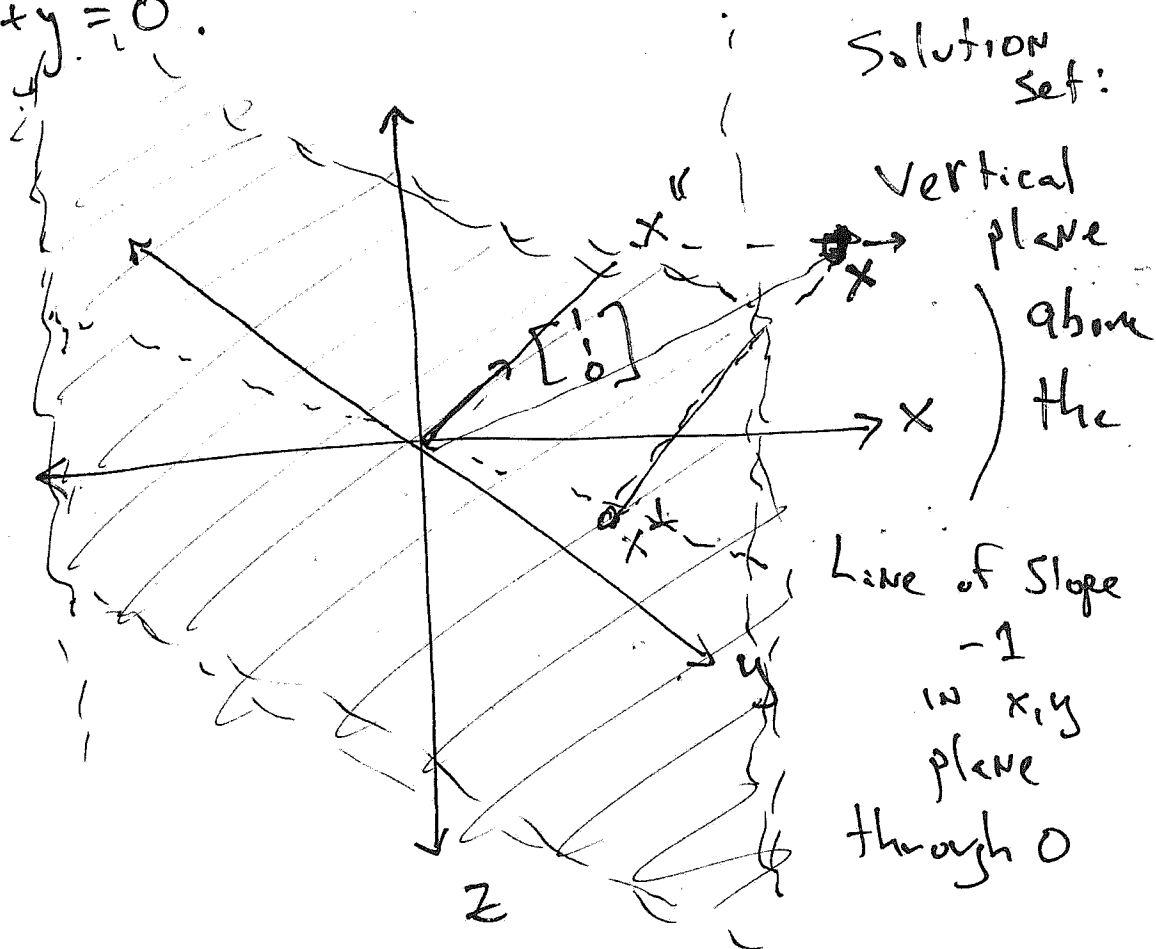 +y = 0.
Solution
set:
Vertical
plane
above
the
Line of Slope
-1
in x,y
plane
through 0
x"
x
[1
1
0]
x
x⊥
y
z